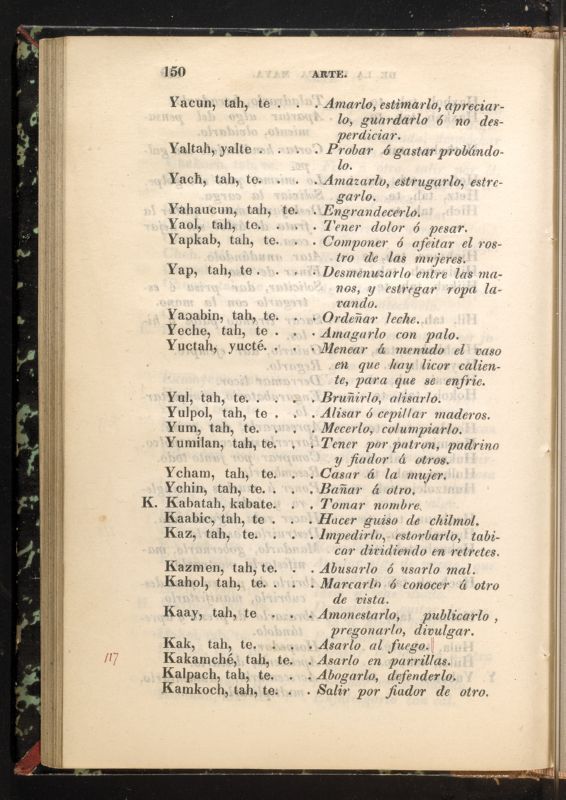 150 ARTE.
Yacun, tah, te . . . Amarlo, estimarlo, apreciar-
lo, guardarlo ó no des-
perdiciar.
Yaltah, yalte . . . . Probar ó gastar probándo-
lo.
Yach, tah, te. . . . Amazarlo, estrugarlo, estre-
garlo.
Yahaucun, tah, te. . Engrandecerlo.
Yaol, tah, te. . . . Tener dolor ó pesar.
Yapkab, tah, te. . . Componer ó afeitar el ros-
tro de las mujeres.
Yap, tah, te . . . . Desmenuzarlo entre las ma-
nos, y estregar ropa la-
vando.
Yaɔabin, tah, te. . . Ordeñar leche.
Yeche, tah, te . . . Amagarlo con palo.
Yuctah, yucté. . . . Menear á menudo el vaso
en que hay licor calien-
te, para que se enfrie.
Yul, tah, te. . . . . Bruñirlo, alisarlo.
Yulpol, tah, te . . . Alisar ó cepillar maderos.
Yum, tah, te. . . . Mecerlo, columpiarlo.
Yumilan, tah, te. . . Tener por patron, padrino
y fiador á otros.
Ycham, tah, te. . . Casar á la mujer.
Ychin, tah, te. . . . Bañar á otro.
K. Kabatah, kabate. . . Tomar nombre.
Kaabic, tah, te . . . Hacer guiso de chilmol.
Kaz, tah, te. . . . . Impedirlo, estorbarlo, tabi-
car dividiendo en retretes.
Kazmen, tah, te. . . Abusarlo ó usarlo mal.
Kahol, tah, te. . . . Marcarlo ó conocer á otro
de vista.
Kaay, tah, te . . . Amonestarlo, publicarlo,
pregonarlo, divulgar.
Kak, tah, te. . . . . Asarlo al fuego.
117 Kakamché, tah, te. . Asarlo en parrillas.
Kalpach, tah, te. . . Abogarlo, defenderlo.
Kamkoch, tah, te. . . Salir por fiador de otro.